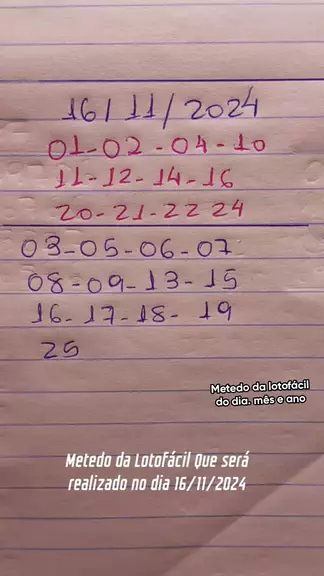 16/11/2024
01-02-04-10
11-12-14-16
20-21-22 24
03-05-06-07
08-09-13-15
16-17-18-19
25
Metedo da lotofácil
do dia. mês e ano
Metedo da Lotofácil Que será
realizado no dia 16/11/2024